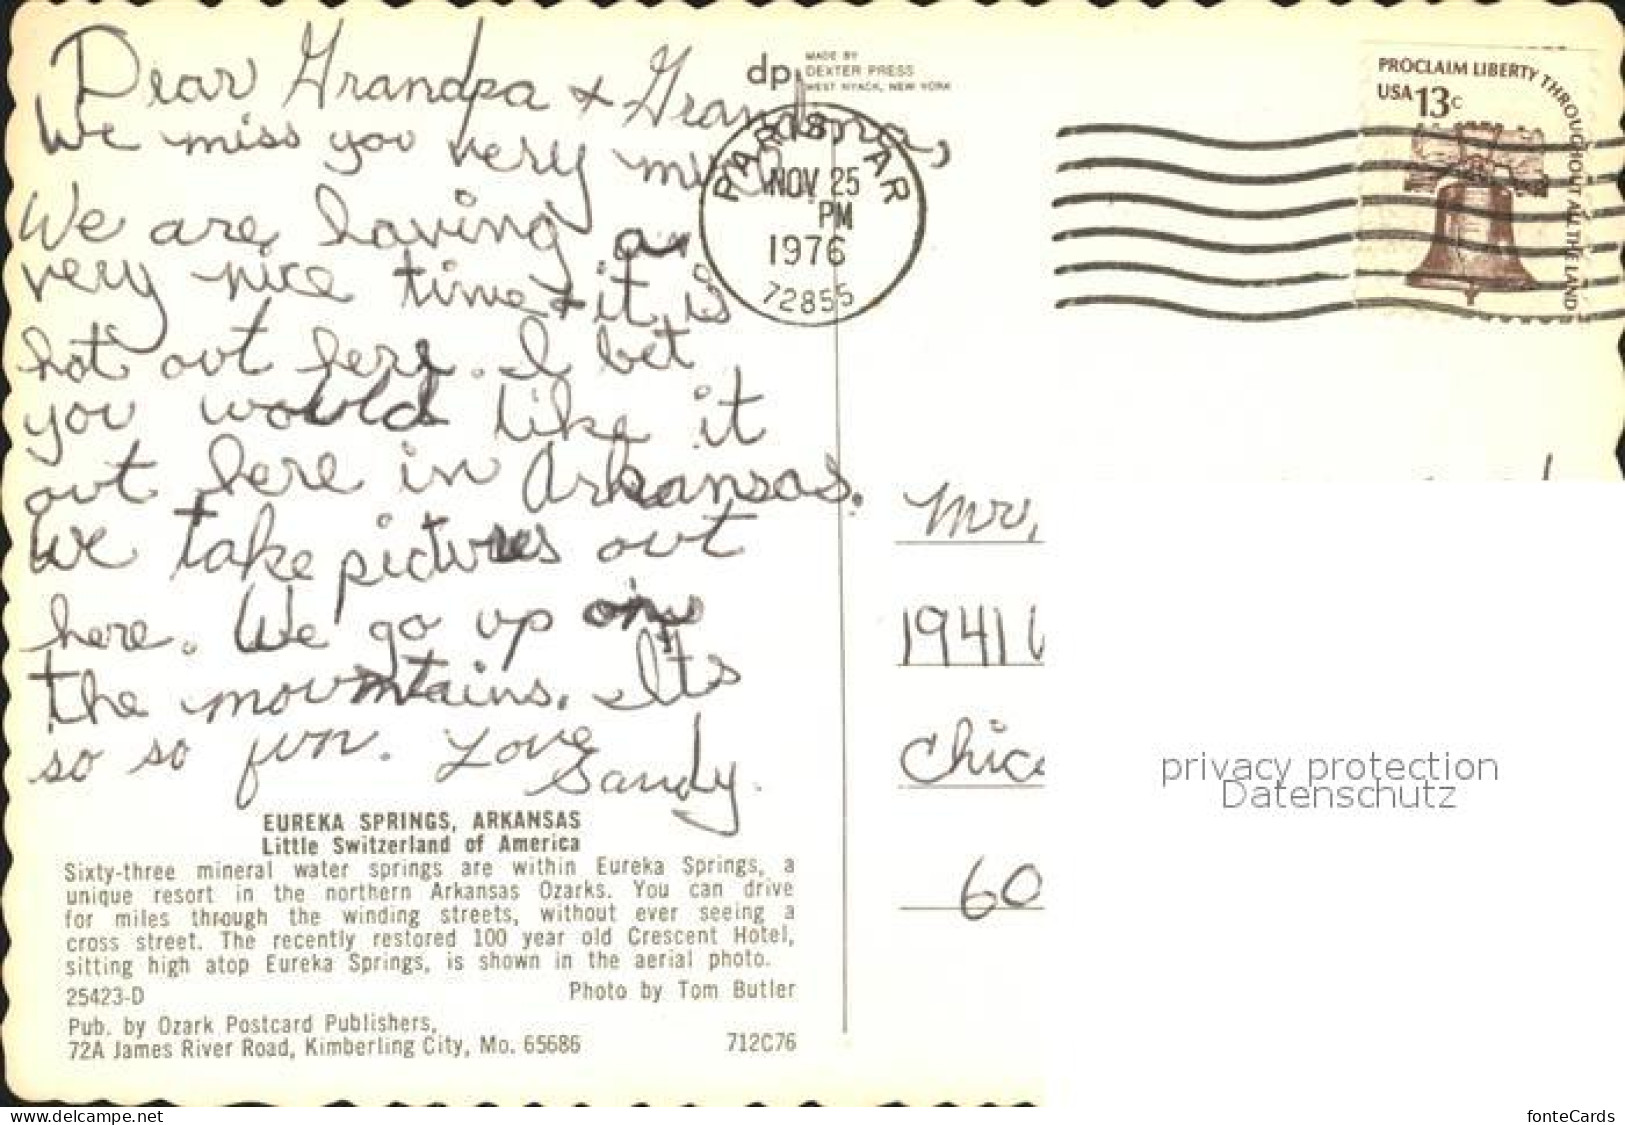 Dear Grandpa & Grandma,
We miss you very much
We are having a
very nice time & it is
hot out here. I bet
you would like it
out here in Arkansas.
We take pictures out
here. We go up on
the mountains. Its
so so fun. Love
Sandy.
EUREKA SPRINGS, ARKANSAS
Little Switzerland of America
Sixty-three mineral water springs are within Eureka Springs, a
unique resort in the northern Arkansas Ozarks. You can drive
for miles through the winding streets, without ever seeing a
cross street. The recently restored 100 year old Crescent Hotel,
sitting high atop Eureka Springs, is shown in the aerial photo.
25423-D
Photo by Tom Butler
Pub. by Ozark Postcard Publishers,
72A James River Road, Kimberling City, Mo. 65686
712C76
dp
MADE BY
DEXTER PRESS
WEST NYACK, NEW YORK
PARIS, AR
NOV 25
PM
1976
72855
PROCLAIM LIBERTY THROUGHOUT ALL THE LAND
USA 13c
Mr,
1941
Chic
60
privacy protection
Datenschutz
www.delcampe.net
fonteCards